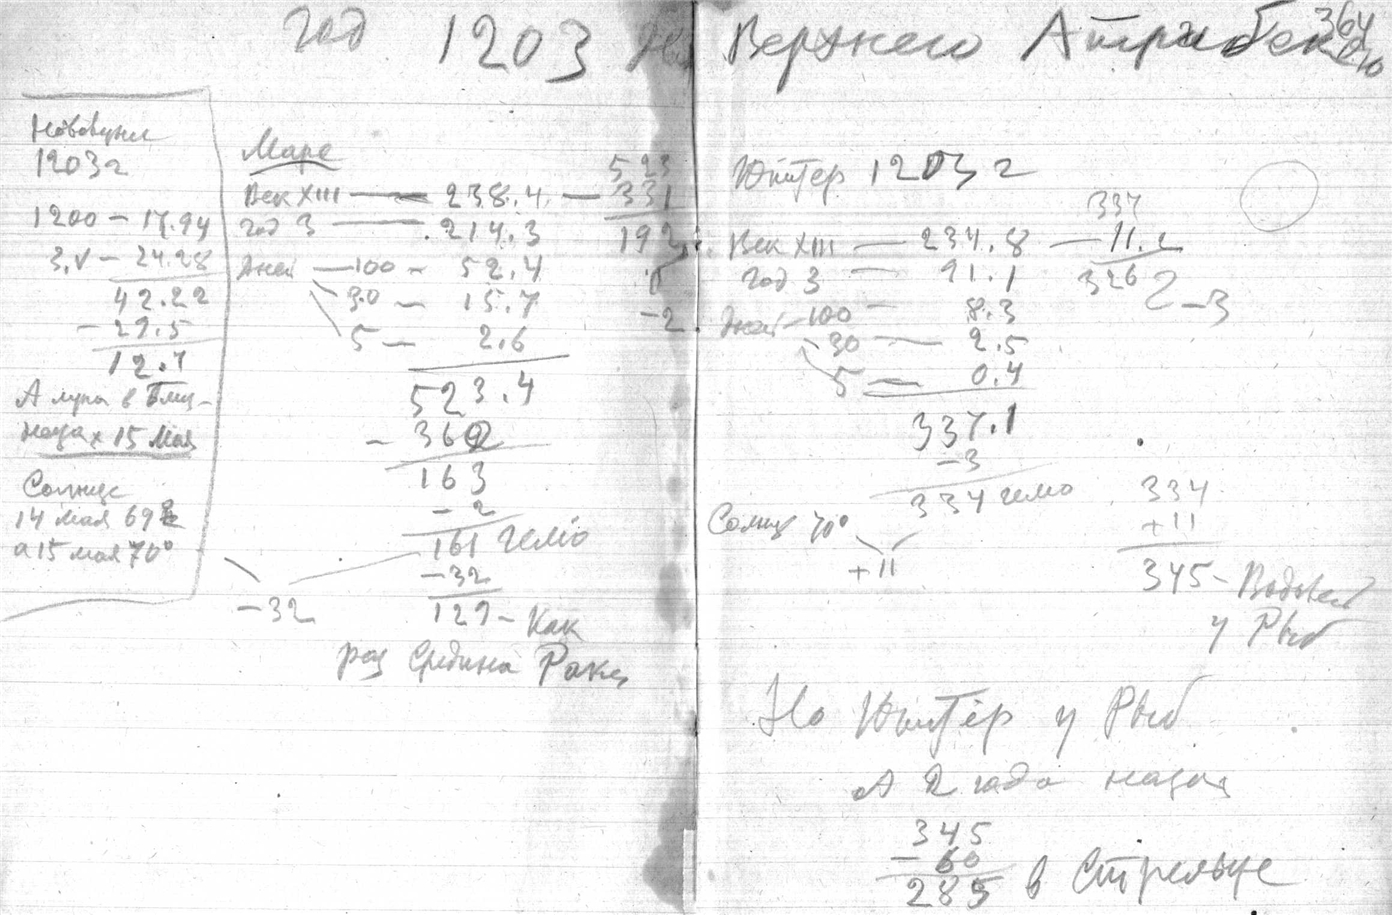 год 1203 для Верхнего Атрибек
364
Новолун
1203 г
1200 – 17.94
3.V – 24.28
42.22
– 29.5
12.7
А луна в Близ-
нецах 15 мая
Солнце
14 мая 69
а 15 мая 70°
– 32
Марс
Век XIII — 238.4 — 331
год 3 — 214.3
дней — 100 — 52.4
30 — 15.7
5 — 2.6
523.4
– 360
163
– 2
161 гелио
– 32
129 – Как
раз Средина Рака
523
331
192
– 2
Юпитер 1203 г
Век XIII — 234.8 — 11.2
год 3 — 91.1
дней – 100 — 8.3
– 30 — 2.5
5 — 0.4
337.1
– 3
334 гелио
337
11.2
326
– 3
Солнце 70°
+ 11
334
+ 11
345 – Водолей
у Рыб
Но Юпитер у Рыб
А 2 года назад
345
– 60
285 в Стрельце